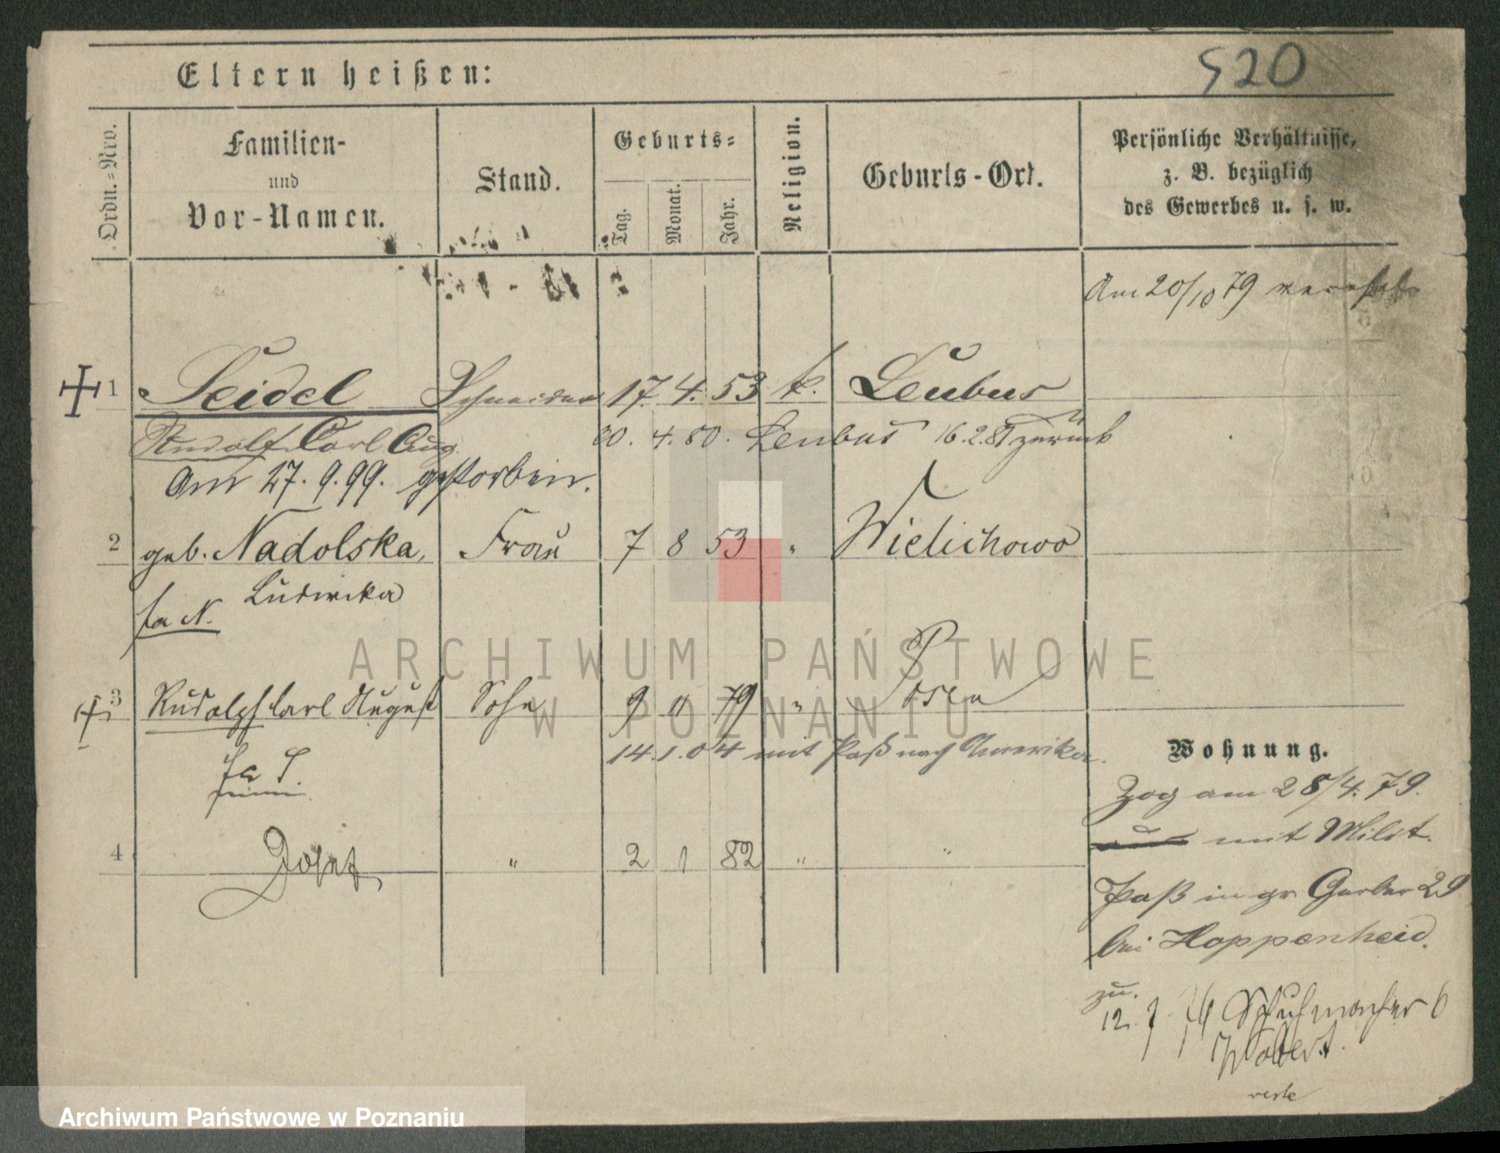 520
Eltern heißen:
Ordn.-Nro.
Familien-
und
Vor-Namen.
Stand.
Geburts-
Tag.
Monat.
Jahr.
Religion.
Geburts-Ort.
Persönliche Verhältnisse,
z. B. bezüglich
des Gewerbes u. s. w.
Am 20/10 79
1 Seidel Schneider 17. 4. 53 k. Leubus
Rudolf Carl Aug. 20. 4. 80. Leubus 16.2.81 zurück
Am 27. 9. 99. gestorben.
2 geb. Nadolska, Frau 7 8 53 " Wielichowo
Ludwika
fa N.
3 Rudolph Carl August Sohn 9 79 " Posen
14. 1. 04 mit Paß nach Amerika.
fa S
4 Josef " 2 1 82 " "
Wohnung.
Zog am 28/4. 79.
mit Milit.
Paß in gr Gerber 29
bei Hoppenheid.
zu.
12. 7. Schuhmacher 6
ARCHIWUM PAŃSTWOWE
W POZNANIU
Archiwum Państwowe w Poznaniu